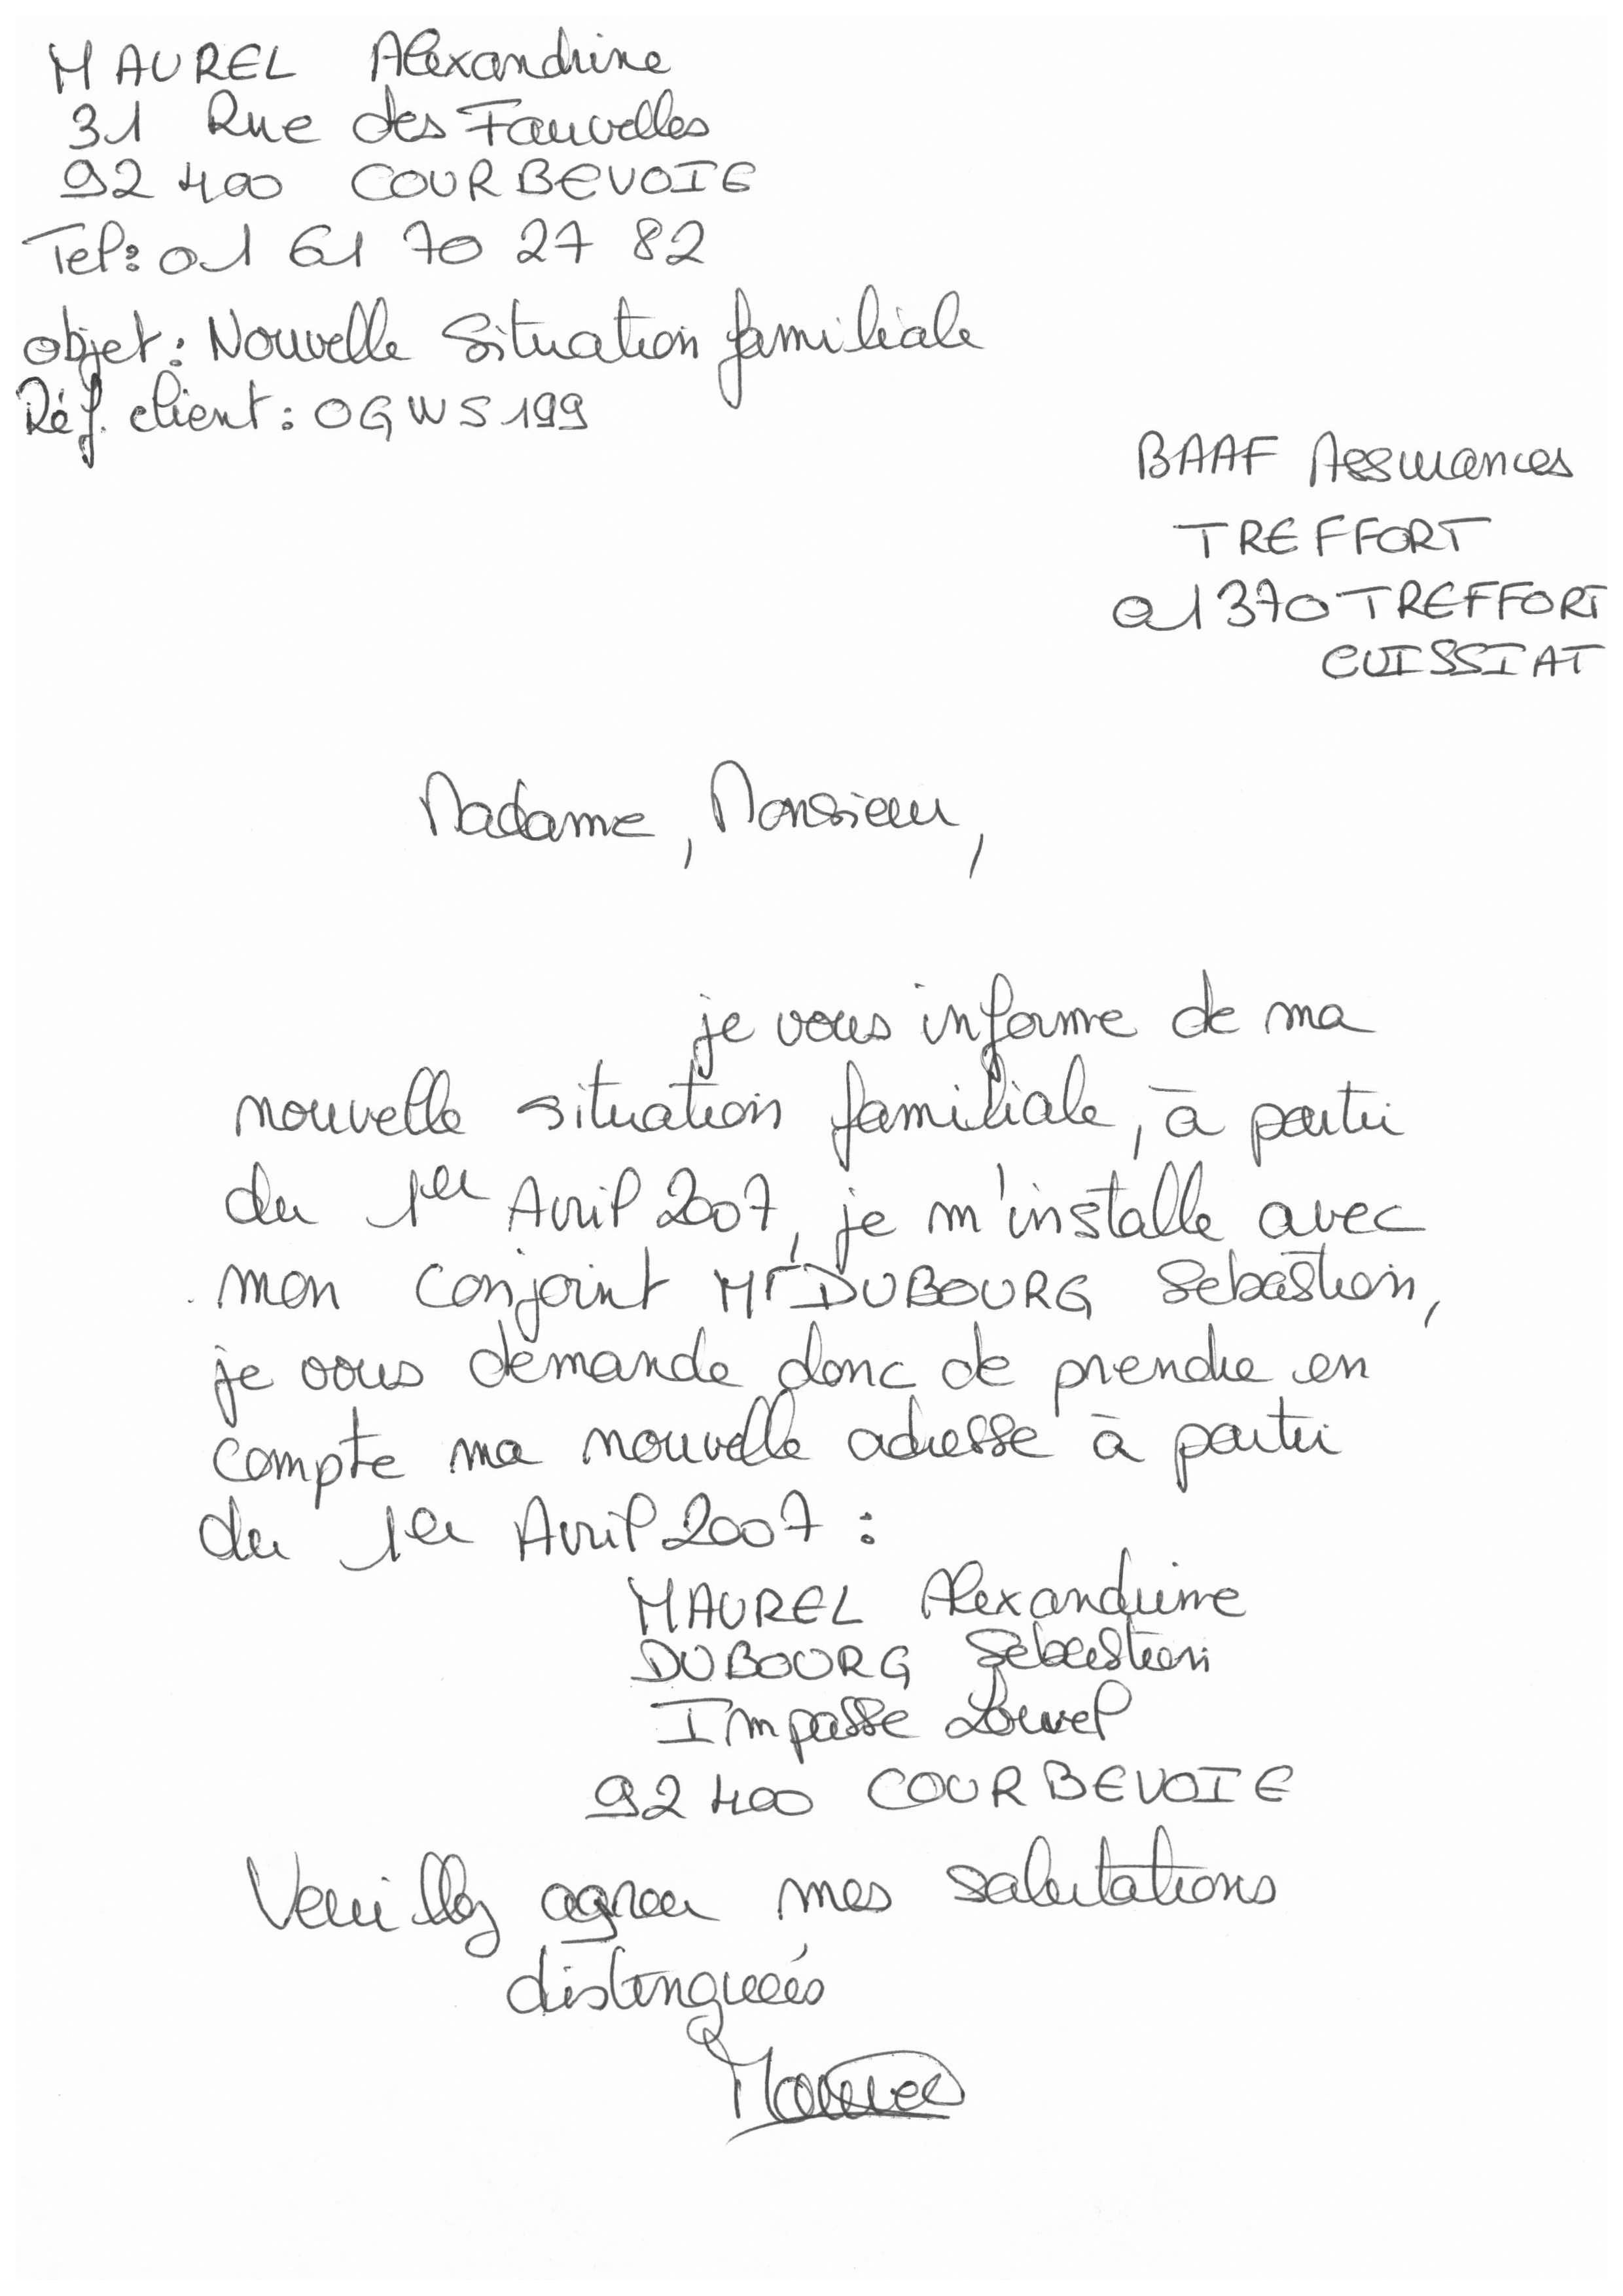 MAUREL Alexandrine
31 Rue des Fauvelles
92400 COURBEVOIE
Tel: 01 61 70 27 82
objet: Nouvelle Situation familiale
Réf. client: OGWS199
BAAF Assurances
TREFFORT
01370 TREFFORT
CUISSIAT
Madame, Monsieur,
je vous informe de ma
nouvelle situation familiale, à partir
du 1er Avril 2007, je m'installe avec
mon conjoint Mr DUBOURG Sebastien,
je vous demande donc de prendre en
compte ma nouvelle adresse à partir
du 1er Avril 2007 :
MAUREL Alexandrine
DUBOURG Sebastien
Impasse Louvel
92400 COURBEVOIE
Veuillez agreer mes salutations
distinguées
Maurel